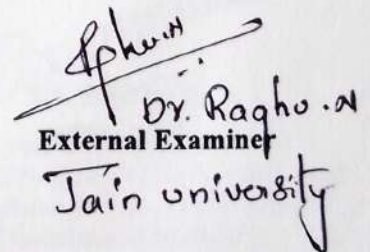 Dr. Raghu .N
External Examiner
Jain university